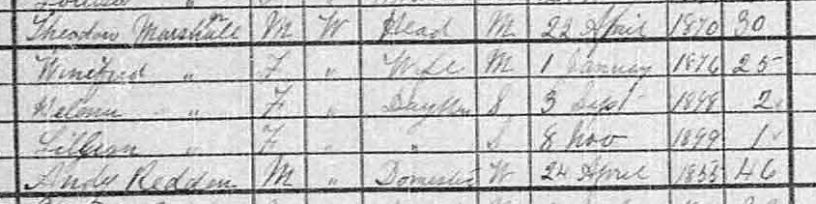 Theodore Marshall M W Head M 22 April 1870 30
Winifred " F " Wife M 1 January 1876 25
Helena " F " Daughter S 3 Sept 1898 2
Lillian " F " " S 8 Nov 1899 1
Andy Redden M " Domestic W 24 April 1855 46